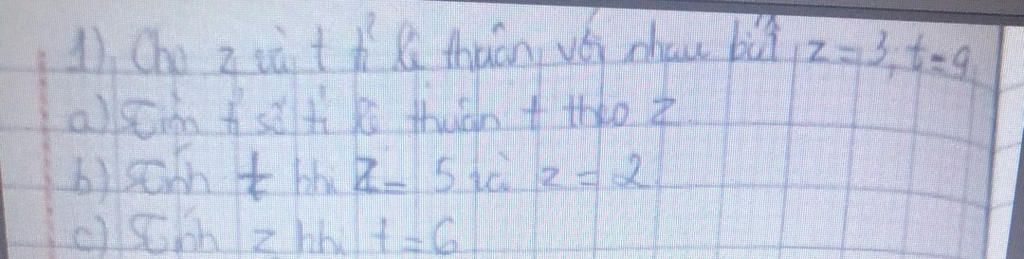 1) Cho z và t tỉ lệ thuận với nhau biết z = 3, t = 9
a) Tìm tỉ số tỉ lệ thuận t theo z.
b) Tính t khi z = 5 và z = 2
c) Tính z khi t = 6